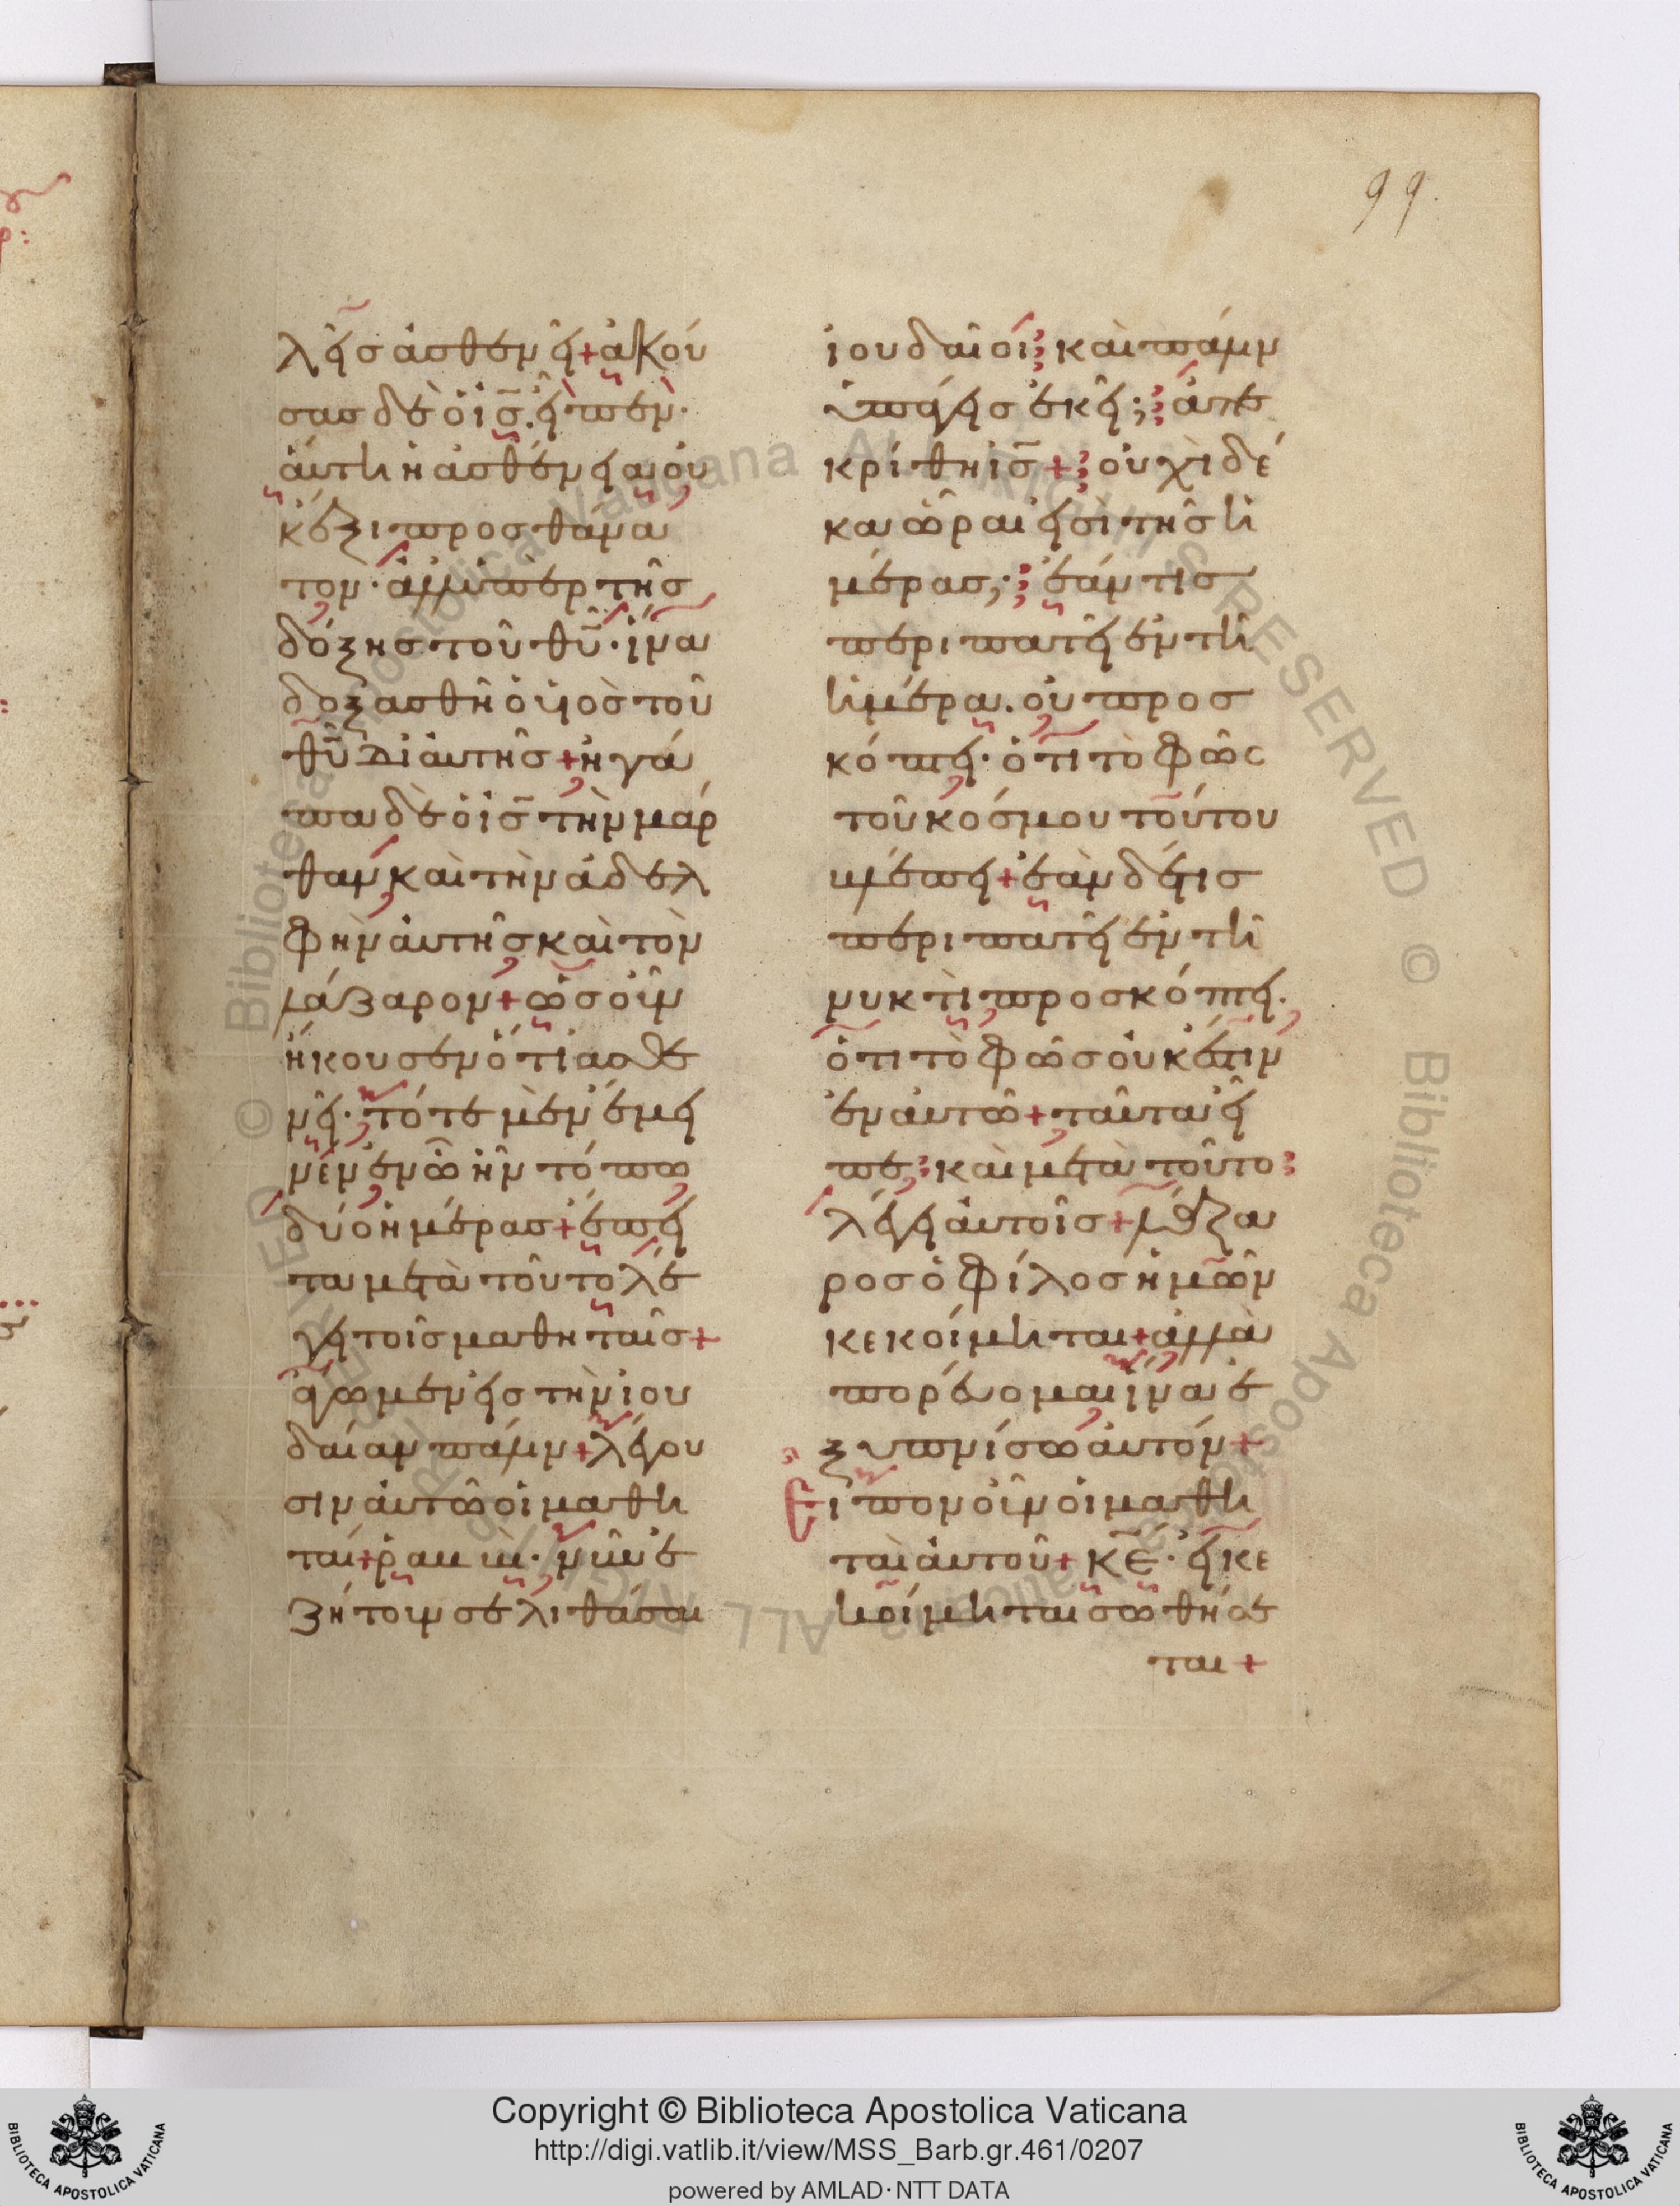 99.
λεῖς ἀσθενεῖ + ἀκού
σας δὲ ὁ ἰς̄. εἶπεν·
ἁύτη ἡ ἀσθένεια οὐ
κ ἔξι προς θάνα
τον· ἀλλ' ὑπὲρ τῆς
δόξης τοῦ θῦ· ἵνα
δοξασθῆ ὁ υἱὸς τοῦ
θῦ δι ἀυτῆς + ἠγά
πα δὲ ὁ ἰς̄ τὴν μάρ
θαν καὶ τὴν ἀδελ
φὴν ἀυτῆς καὶ τὸν
λάζαρον + ὡς οὖν
ἤκουσεν ὅτι ἀσθε
νεῖ· τότε μὲν ἔμει
νεν ἐν ὧ ἦν τόπω
δύο ἡμέρας + ἔπει
τα μετὰ τοῦτο λέ
γει τοῖς μαθηταῖς +
ἄγωμεν εἰς τὴν ἰου
δαίαν πάλιν + λέγου
σιν ἀυτῶ οἱ μαθη
ταί + ῥαββὶ· νῦν ἐ
ζήτουν σε λιθάσαι
ἰουδαῖοι; καὶ πάλιν
ὑπάγεις ἐκεῖ; ἀπε
κρίθη ἰς̄ + οὐχὶ δέ
κα ὧραι εἰσὶ τῆς ἡ
μέρας; ἐάν τις
περιπατεῖ ἐν τῆ
ἡμέρα. οὐ προσ
κόπτει· ὅτι τὸ φῶς
τοῦ κόσμου τούτου
βλέπει + ἐὰν δέ τις
περιπατεῖ ἐν τῆ
νυκτὶ προσκόπτει.
ὅτι τὸ φῶς οὐκ ἔστιν
ἐν ἀυτῶ + ταῦτα εἶ
πε; καὶ μετὰ τοῦτο
λέγει ἀυτοῖς + λάζα
ρος ὁ φίλος ἡμῶν
κεκοίμηται + ἀλλὰ
πορεύομαι ἵνα ἐ
ξυπνίσω ἀυτόν +
Εἶπον οὖν οἱ μαθη
ταὶ ἀυτοῦ + κ̄ε̄· εἰ κε
κοίμηται σωθήσε
ται +
Copyright © Biblioteca Apostolica Vaticana
http://digi.vatlib.it/view/MSS_Barb.gr.461/0207
powered by AMLAD·NTT DATA
BIBLIOTECA APOSTOLICA VATICANA
BIBLIOTECA APOSTOLICA VATICANA